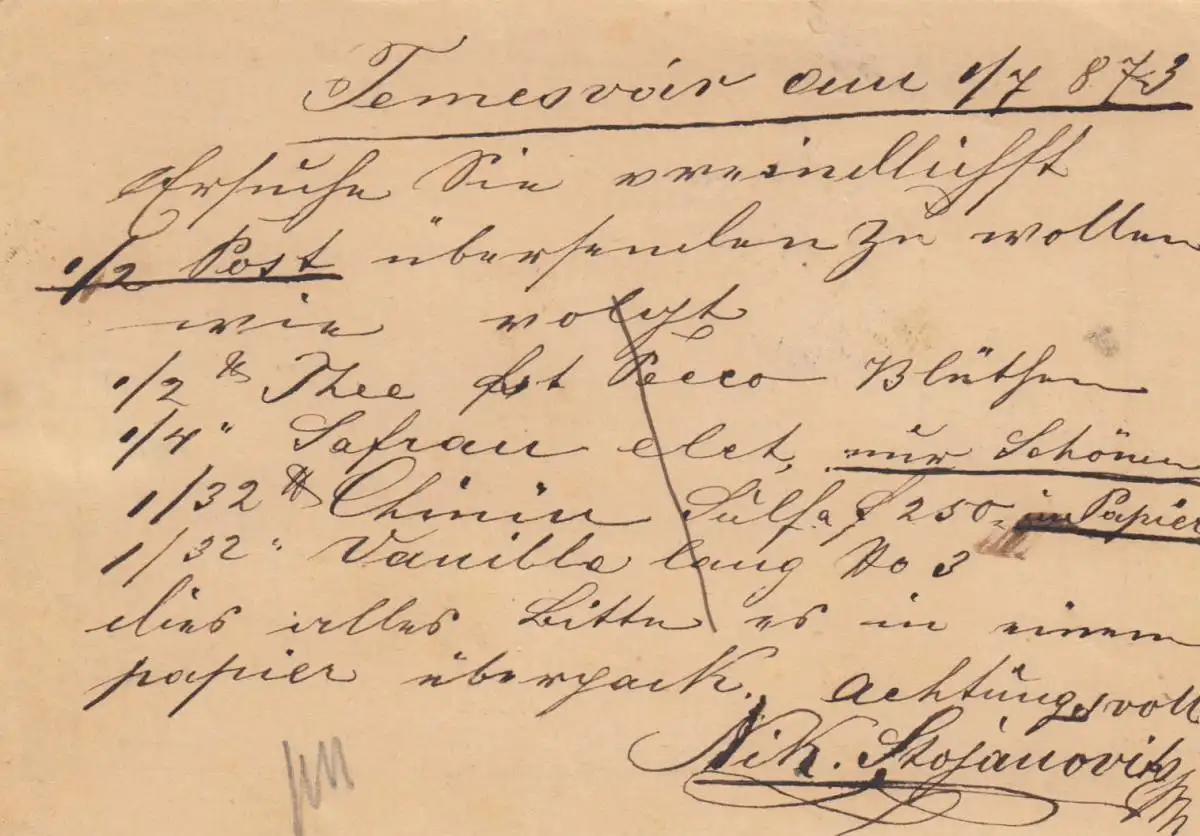 Temesvár am 1/7 873
Ersuche Sie vreindlichst
1/2 Post übersenden zu wollen
wie volgt
1/2 ℔ Thee fst Pecco Blüthen
1/4 " Safran elct, nur Schönen
1/32 ℔ Chinin Sulfa f 250 in Papier
1/32 " Vanille lang No 3
dies alles Bitte es in einem
papier überpack. Achtungsvoll
Nik. Stojanovits